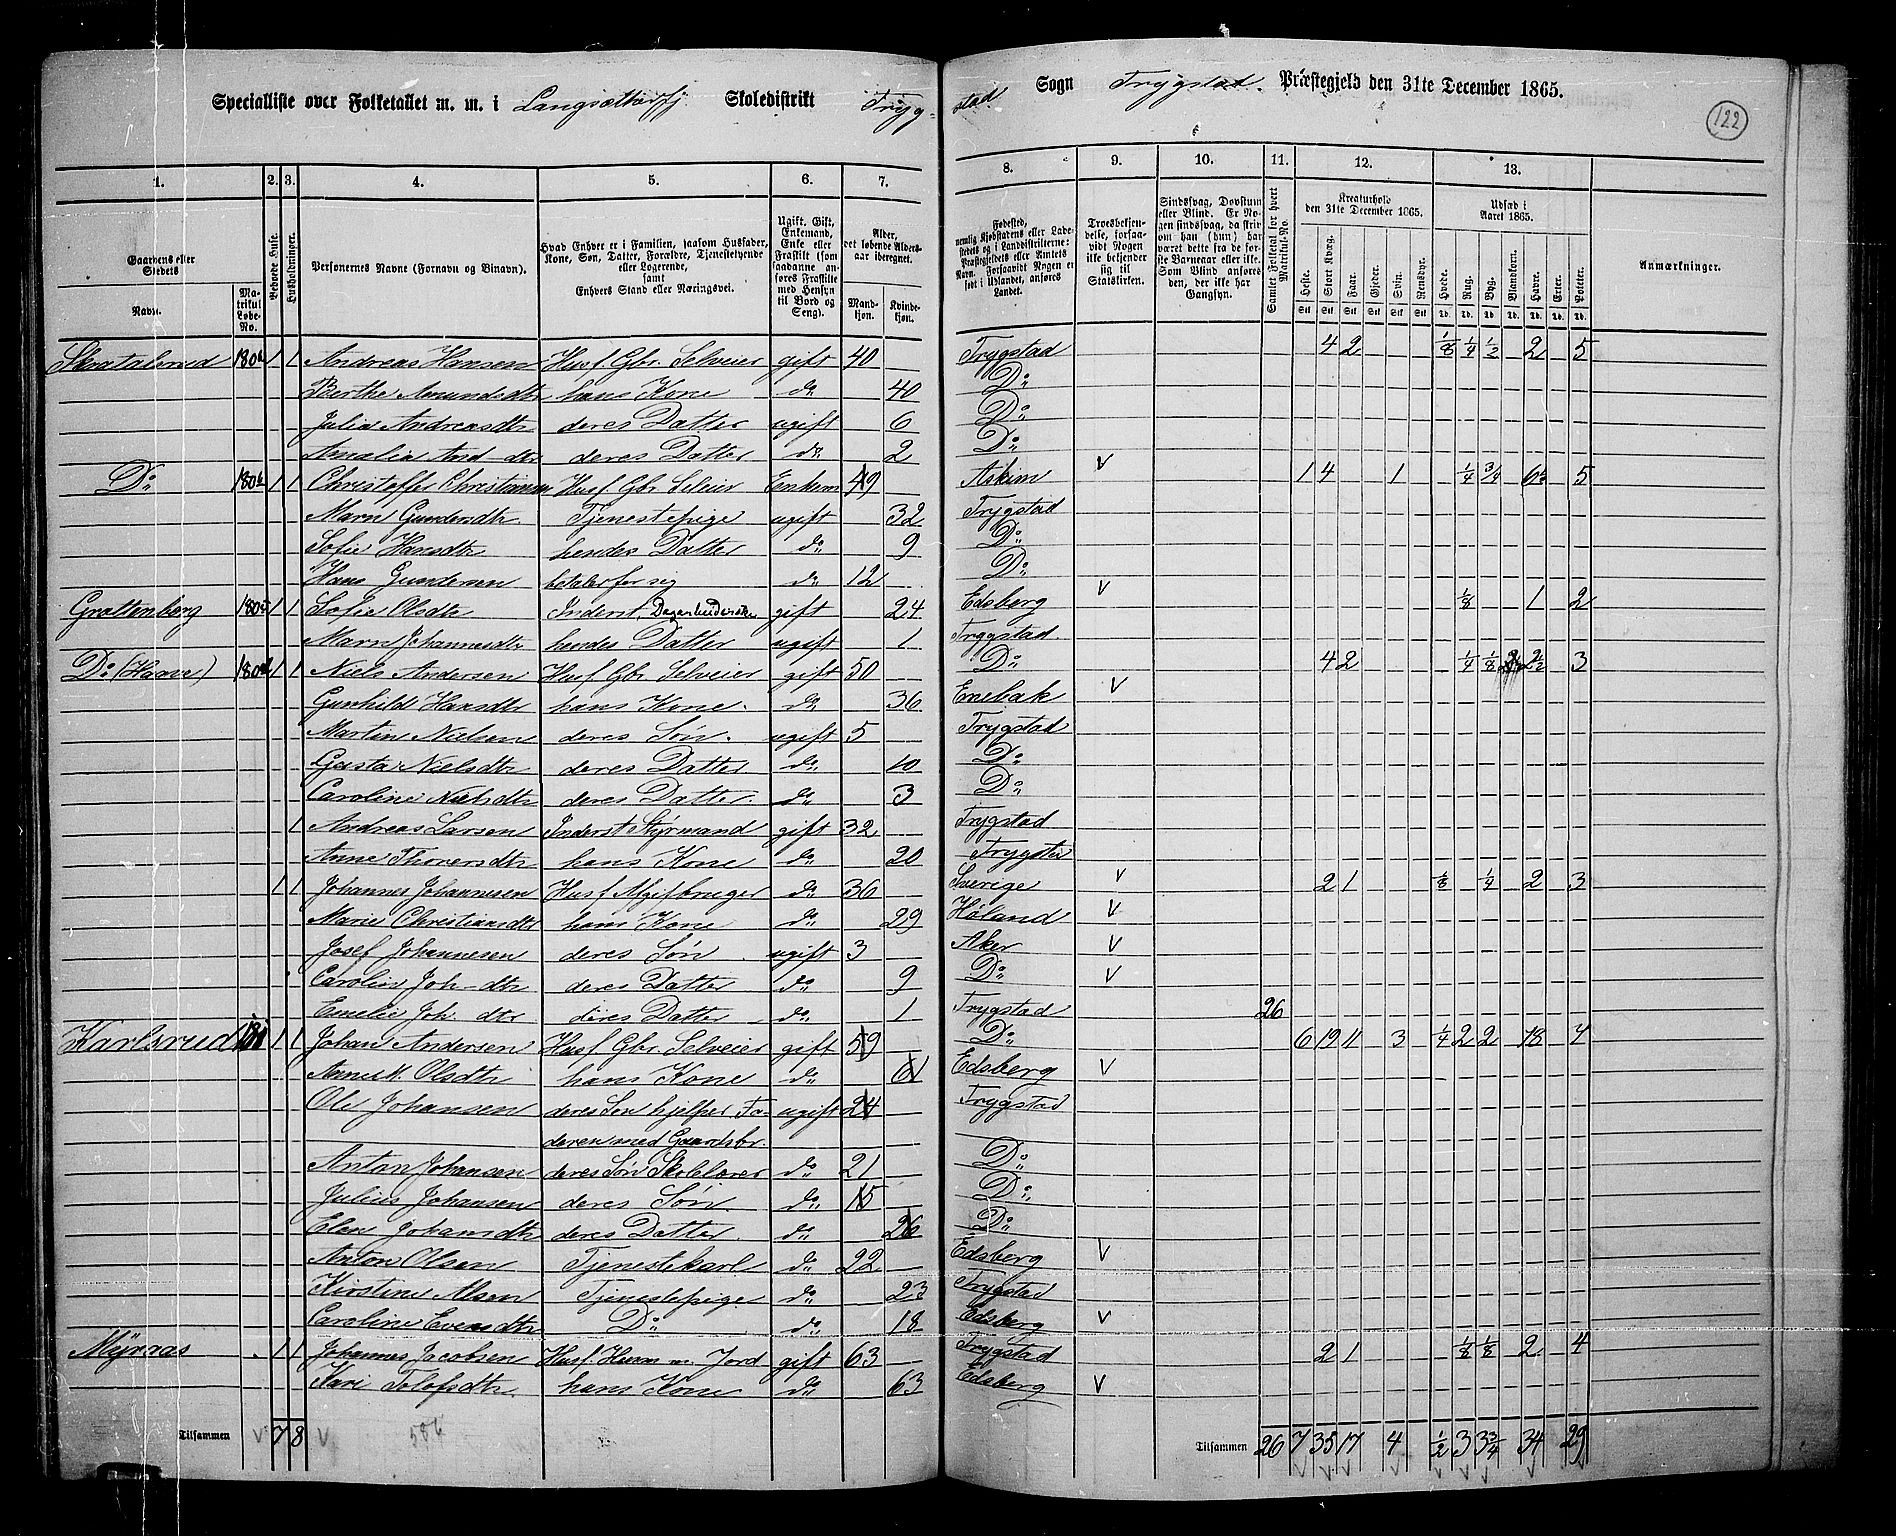 Specialliste over Folketallet m. m. i Langsætter Skoledistrikt Tryg-
stad Sogn Trygstad Præstegjeld den 31te December 1865.
122
1. 2. 3. 4. 5. 6. 7. 8. 9. 10. 11. 12. 13.
Gaardens eller Stedets
Navn.
Matrikul Løbe-No.
Beboede Huse.
Husholdninger.
Personernes Navne (Fornavn og Binavn).
Hvad Enhver er i Familien, saasom Husfader, Kone, Søn, Datter, Forældre, Tjenestetyende eller Logerende, samt Enhvers Stand eller Næringsvei.
Ugift, Gift, Enkemand, Enke eller Fraskilt (som saadanne anføres Fraskilte med Hensyn til Bord og Seng).
Alder, det løbende Aldersaar iberegnet.
Mandkjøn.
Kvindekjøn.
Fødested, nemlig Kjøbstadens eller Ladestedets og i Landdistrikterne: Præstegjeldets eller Amtets Navn. Forsaavidt Nogen er født i Udlandet, anføres Landet.
Troesbekjendelse, forsaavidt Nogen ikke bekjender sig til Statskirken.
Sindssvag, Døvstum eller Blind. Er Nogen sindssvag, da skrives om han (hun) har været dette fra de første Barneaar eller ikke. Som Blind anføres den, der ikke har Gangsyn.
Samlet Folketal for hvert Matrikul-No.
Kreaturhold den 31te December 1865.
Heste. Stort Kvæg. Faar. Gjeder. Svin. Rensdyr.
Udsæd i Aaret 1865.
Hvede. Rug. Byg. Blandkorn. Havre. Erter. Poteter.
Anmærkninger.
Skratalsrud 180a 1 1 Andreas Hansen Husf. Gbr. Selveier gift 40 Trygstad 4 2 1/8 1/4 1/2 2 5
Berthe Amundsdtr hans Kone do 40 Do
Julia Andreasdtr deres Datter ugift 6 Do
Amalia And dtr deres Datter do 2 Do
Do 180b 1 1 Christoffer Christiansen Husf Gbr Seleier Enkem 49 Askim V 1 4 1 1/4 3/4 5
Marn Gundersdtr Tjenestepige ugift 32 Trygstad
Sofie Hansdtr hendes Datter do 9 Do
Hans Gundersen betaler for sig do 12 Do
Grattenberg 180c 1 1 Sofie Olsdtr Inderst, Dagarbeiderske gift 24 Edsberg V 1/8 1 2
Marn Johannesdtr hendes Datter ugift 1 Trygstad
Do (Haave) 180d 1 1 Niels Andersen Husf Gbr Selveier gift 50 Do 4 2 1/4 1/8 2 1/2 3
Gunhild Hansdtr hans Kone do 36 Enebak V
Martin Nielsen deres Søn ugift 5 Trygstad
Gusta Nielsdtr deres Datter do 10 Do
Caroline Nielsdtr deres Datter do 3 Do
1 Andreas Larsen Inderst Styrmand gift 32 Trygstad
Anne Thoversdtr hans Kone do 20 Trygstad
1 1 Johannes Johannesen Husf Afgifbruger do 36 Sverige V 2 1 1/8 1/4 2 3
Marie Christiansdtr hans Kone do 29 Høland V
Josef Johannesen deres Søn ugift 3 Aker V
Carolin Joh dtr deres Datter do 9 Do V
Emelie Joh dtr deres Datter do 1 Trygstad 26
Karlsrud 181 1 1 Johan Andersen Husf Gbr Selveier gift 59 Do 6 19 11 3 1/4 2 2 18 7
Annek. Olsdtr hans Kone do 61 Edsberg V
Ole Johansen deres Søn hjelper Fa- ugift 24 Trygstad
deren med Gaardsbr.
Anton Johansen deres Søn Skolelærer do 21 Do
Julius Johansen deres Søn do 15 Do
Elen Johansdtr deres Datter do 26 Do
Anton Olsen Tjenestekarl do 22 Edsberg V
Kirstine Alsen Tjenestepige do 23 Trygstad
Caroline Evensdtr Do do 18 Edsberg V
Myrnas 1 1 Johannes Jacobsen Husf. Huusm m Jord gift 63 Trygstad 2 1 1/8 1/8 2 4
Kari Tolofsdtr hans Kone do 63 Edsberg V
Tilsammen V 7 8 V Tilsammen 26 7 35 17 4 1/2 3 3 3/4 34 29